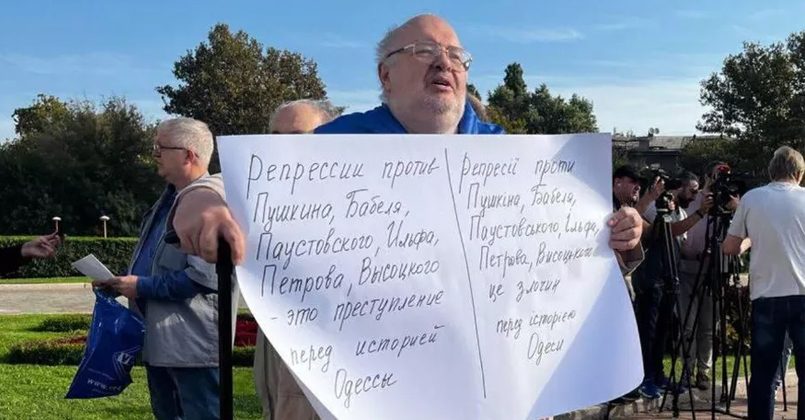 Репрессии против
Пушкина, Бабеля,
Паустовского, Ильфа,
Петрова, Высоцкого
- это преступление
перед историей
Одессы
Репресії проти
Пушкіна, Бабеля,
Паустовського, Ільфа,
Петрова, Висоцкого
це злочин
перед історією
Одеси